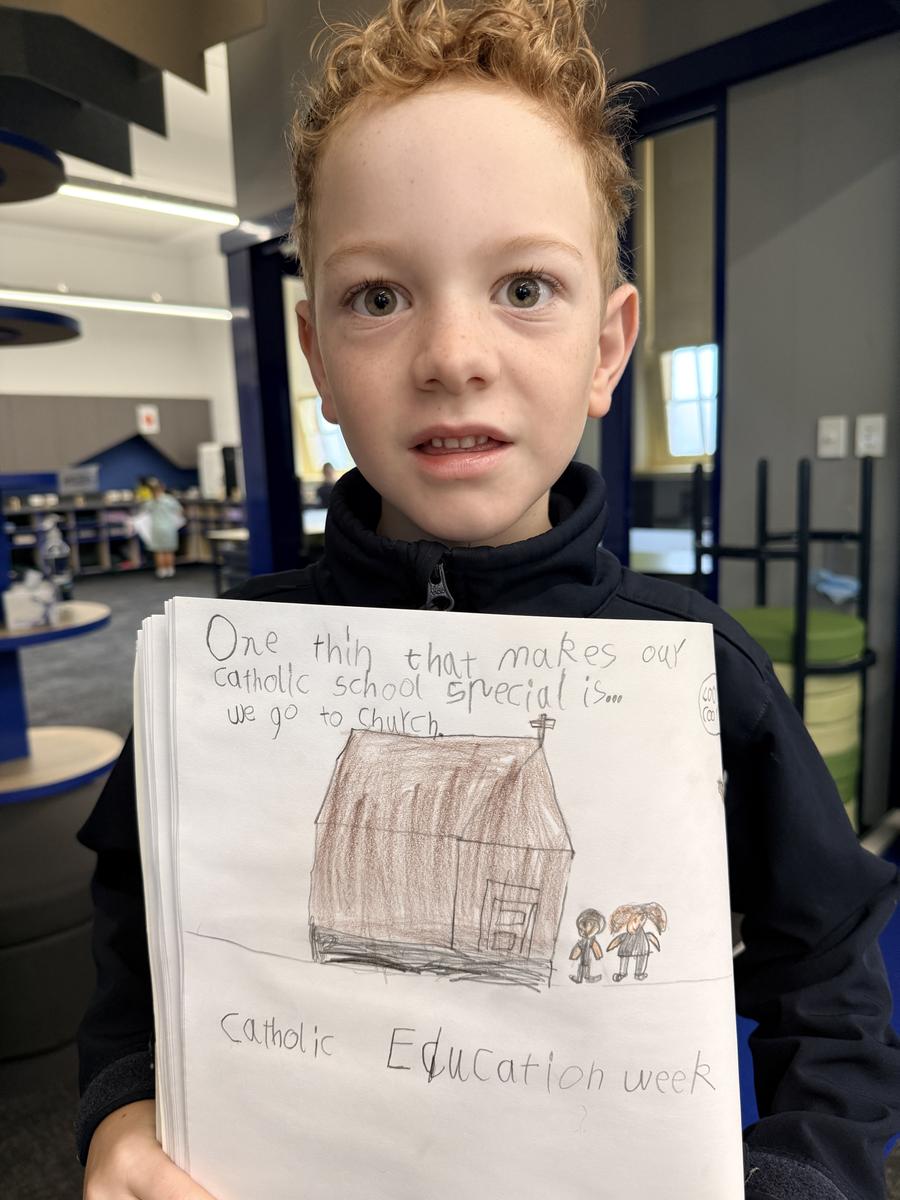 One thin that makes our
catholic school special is...
we go to church.
Catholic Education week